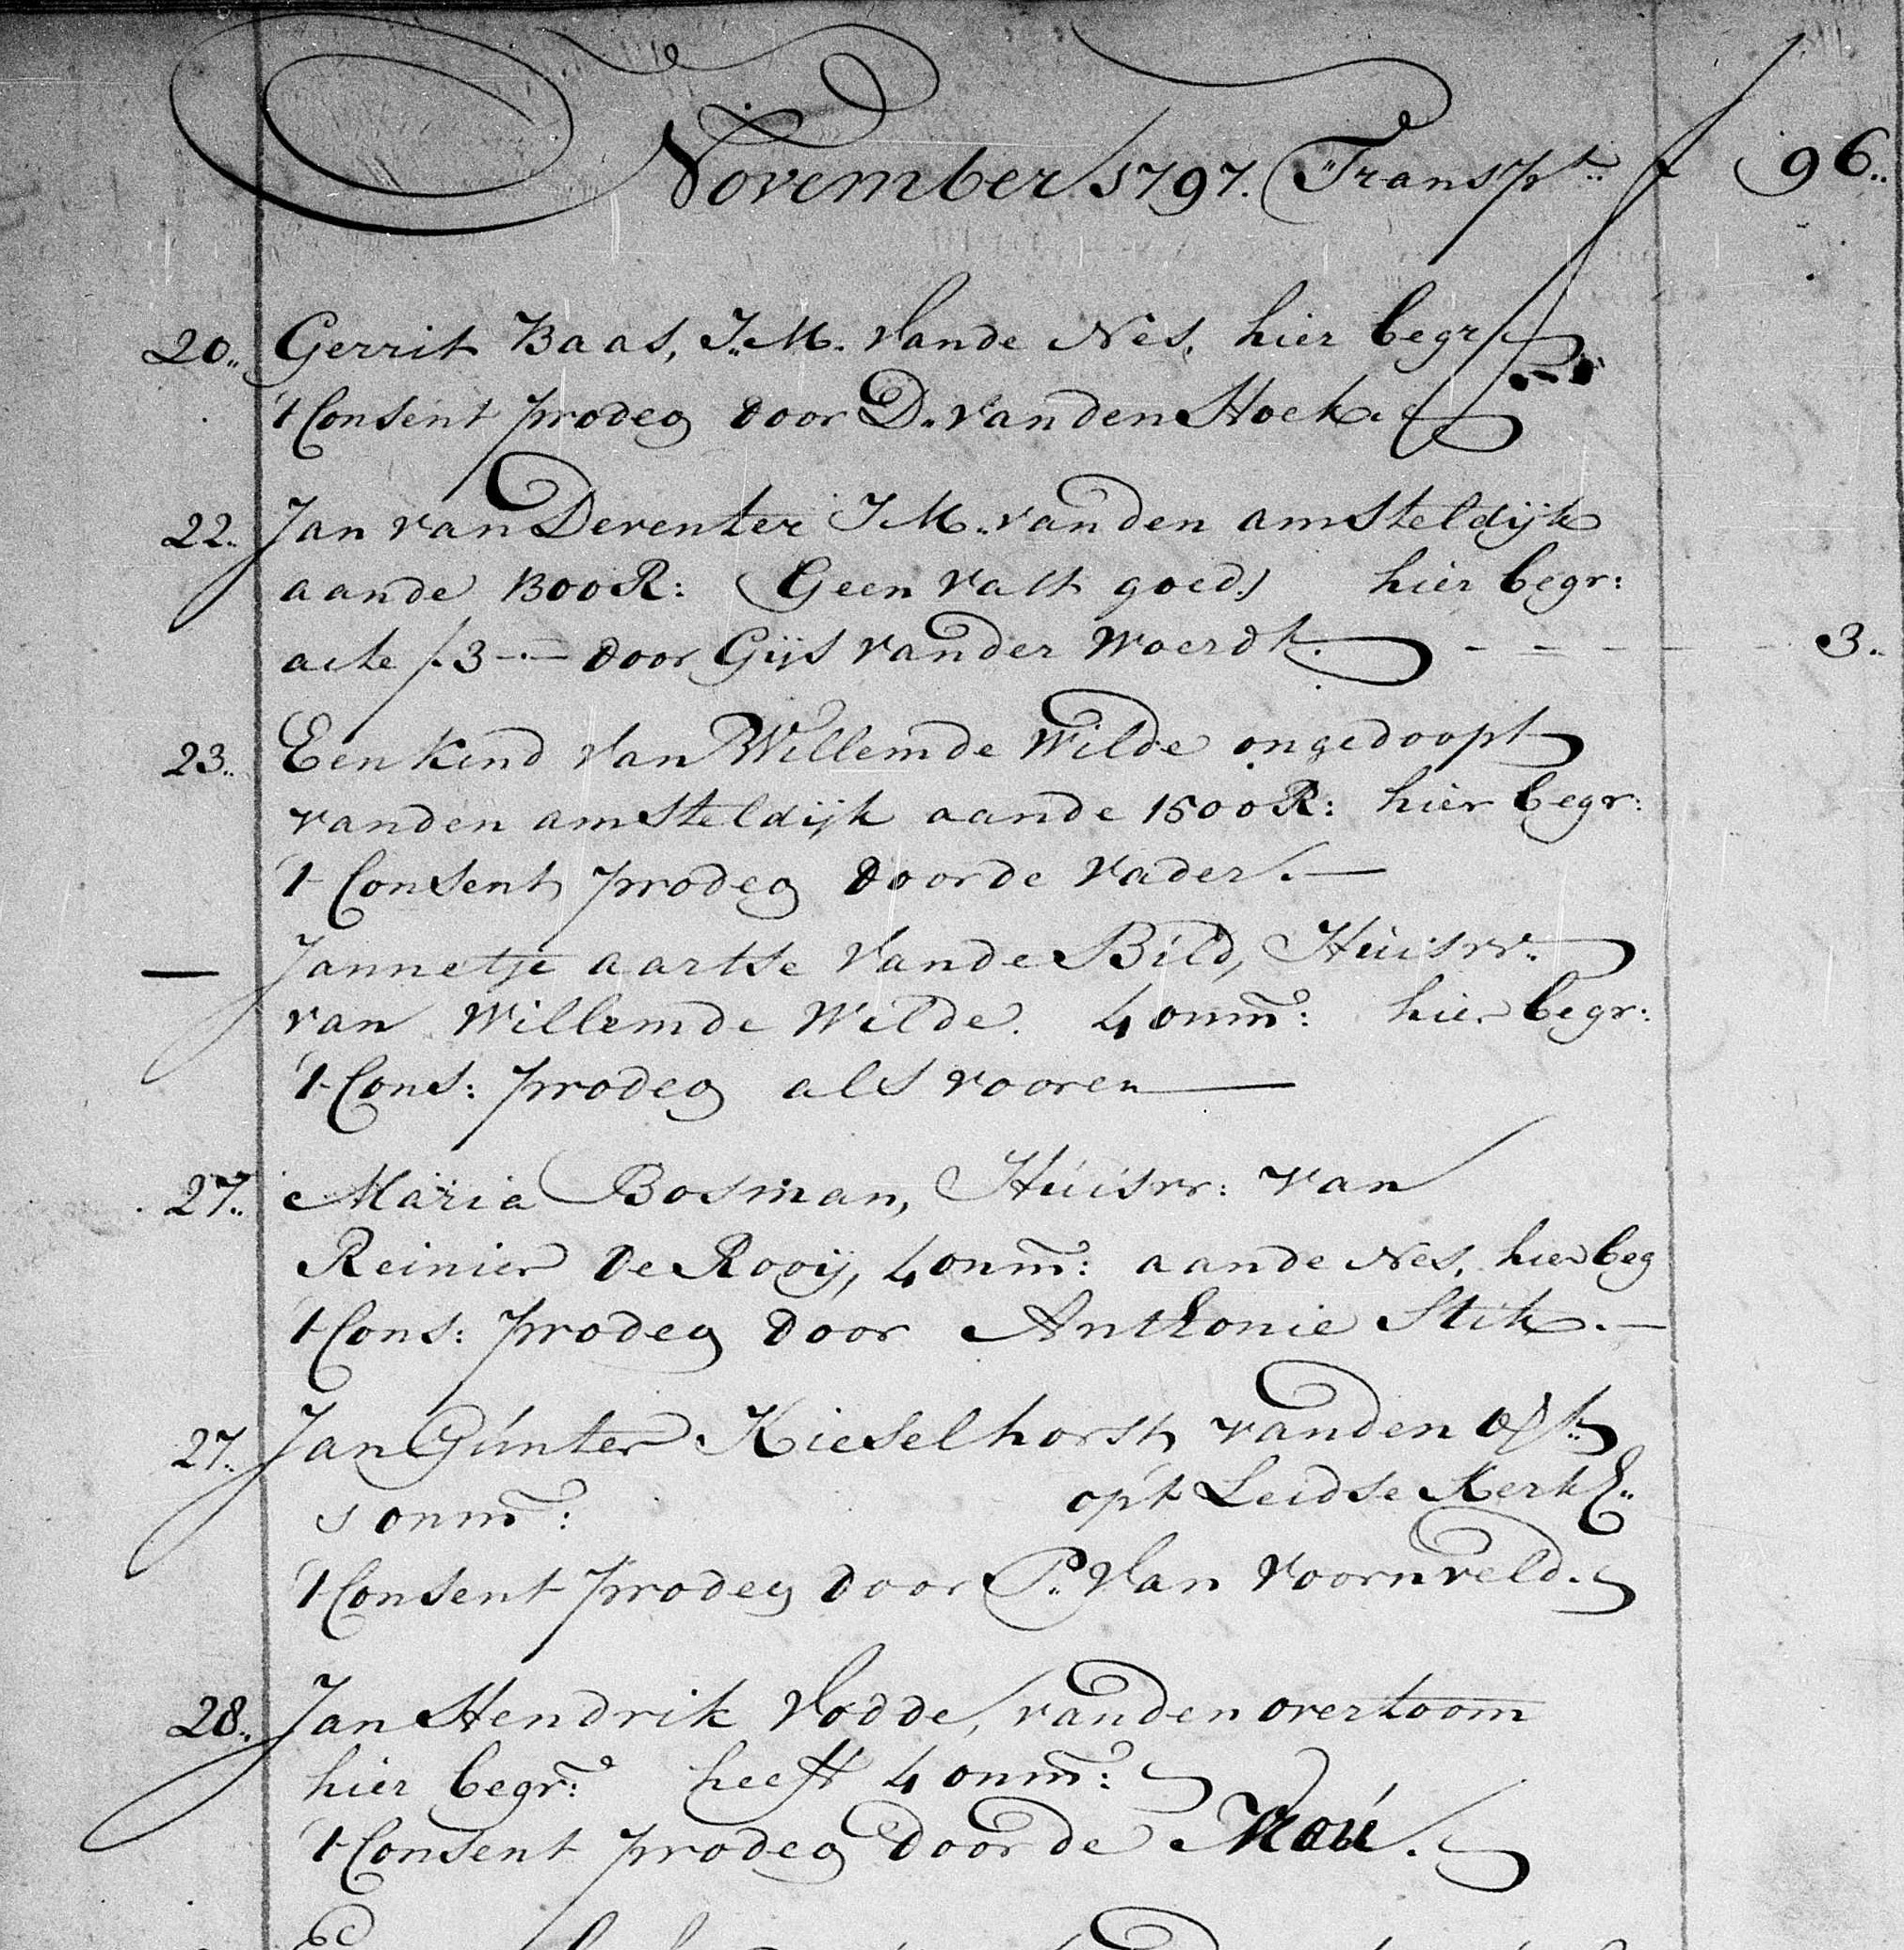 November 1797. Transpt.. f 96..
20.. Gerrit Baas, J.M. van de Nes, hier begr
't Consent prodeo door D. van den Hoek.
22.. Jan van Deventer J M. van den amsteldijk
aande 1300 R: (Geen vast goed) hier begr:
acte f. 3-.- door Gijs van der Woerdt. - - - - - 3..
23.. Een Kind van Willem de Wilde ongedoopt
van den amsteldijk aande 1500 R: hier begr:
't Consent prodeo door de vader. —
— Jannetje aartse van de Bild, Huisvr..
van Willem de Wilde. 4 onm: hier begr:
't Cons: prodeo als vooren —
27.. Maria Bosman, Huisvr: van
Reinier de Rooij, 4 onm: aande Nes, hier beg
't Cons: prodeo door Anthonie Stik. —
27.. Jan Günter Kieselhorst van den
1 onm: op't Leidse Kerk
't Consent prodeo door P. van Voornveld.
28.. Jan Hendrik Vodde, van den overtoom
hier begr: heeft 4 onm:
't Consent prodeo door de Vrou.